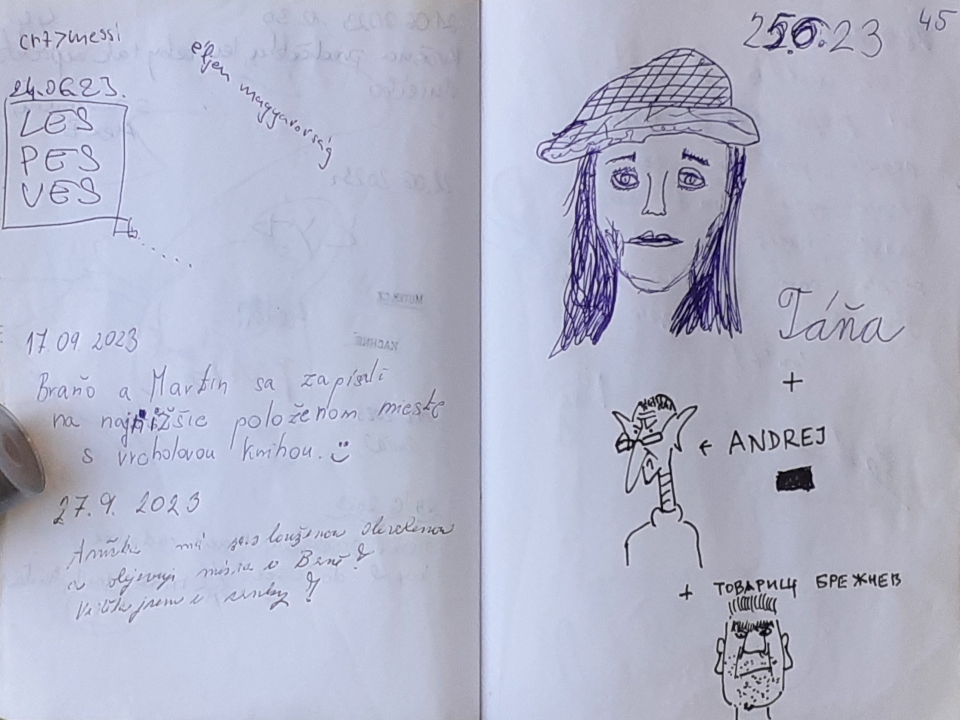 cr7>messi
éljen magyarország
24.06.23.
LES
PES
VES
17.09.2023
Braňo a Martin sa zapísali
na najnižšie položenom mieste
s vrcholovou knihou.
27.9. 2023
má zaslouženou dovolenou
a objevuji místa v Brně
jsem i
25.6.23
45
Táňa
+
← ANDREJ
+ ТОВАРИЩ БРЕЖНЕВ